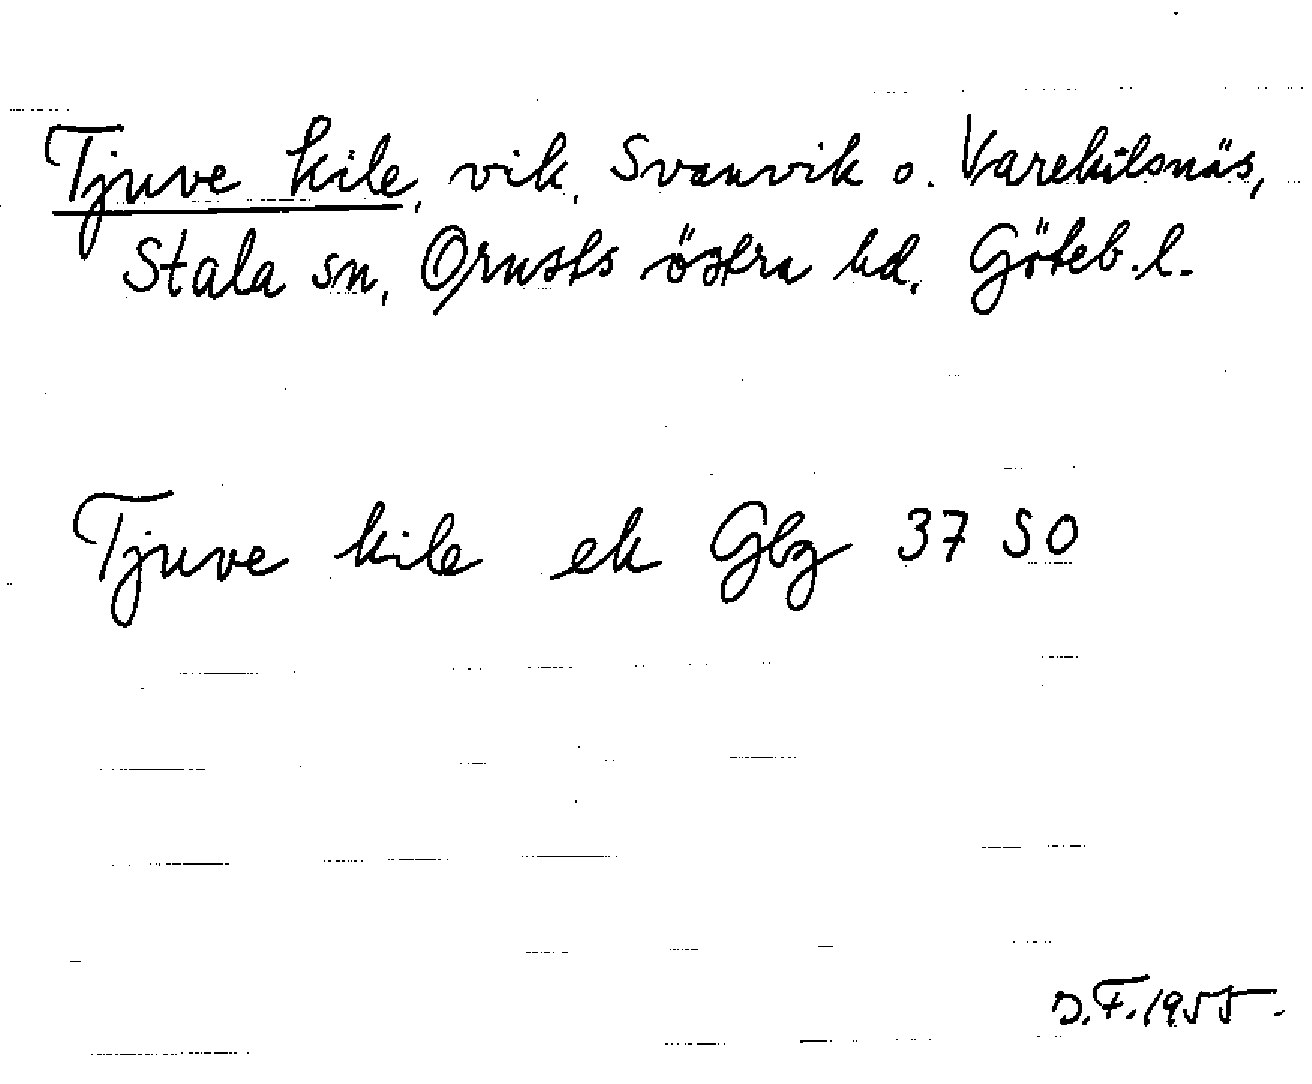 Tjuve kile, vik, Svanvik o. Varekilsnäs,
Stala sn, Orusts östra hd, Göteb. l.
Tjuve kile ek Gbg 37 SO
D.F. 1955.